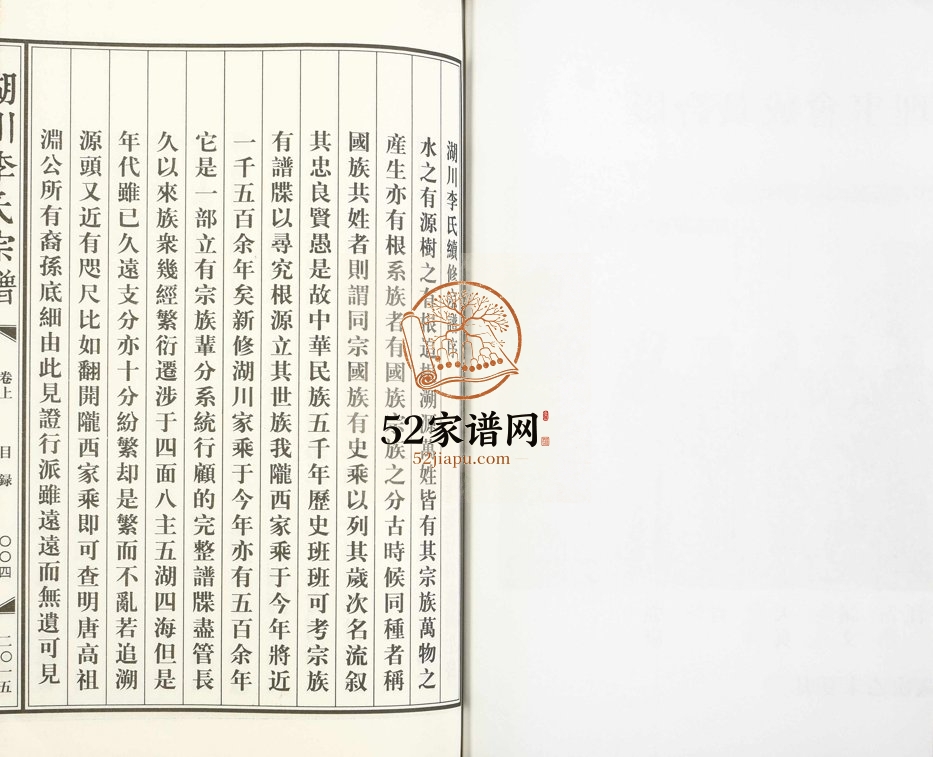 湖川李氏續修宗譜序
水之有源樹之有根追根溯源萬姓皆有其宗族萬物之
産生亦有根系族者有國族宗族之分古時候同種者稱
國族共姓者則謂同宗國族有史乘以列其歲次名流叙
其忠良賢愚是故中華民族五千年歷史班班可考宗族
有譜牒以尋究根源立其世族我隴西家乘于今年將近
一千五百余年矣新修湖川家乘于今年亦有五百余年
它是一部立有宗族輩分系統行顧的完整譜牒盡管長
久以來族衆幾經繁衍遷涉于四面八主五湖四海但是
年代雖已久遠支分亦十分紛繁却是繁而不亂若追溯
源頭又近有咫尺比如翻開隴西家乘即可查明唐高祖
淵公所有裔孫底細由此見證行派雖遠遠而無遺可見
湖川李氏宗譜
卷上
目録
〇〇四
二〇一五
52家谱网
52jiapu.com